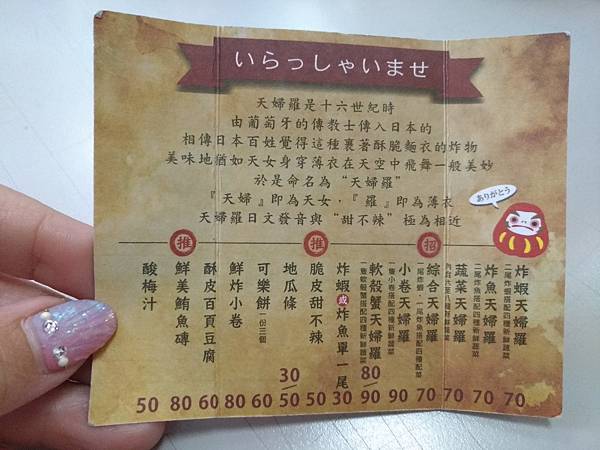 いらっしゃいませ
天婦羅是十六世紀時
由葡萄牙的傳教士傳入日本的
相傳日本百姓覺得這種裹著酥脆麵衣的炸物
美味地猶如天女身穿薄衣在天空中飛舞一般美妙
於是命名為“天婦羅”
『天婦』即為天女,『羅』即為薄衣
天婦羅日文發音與“甜不辣”極為相近
ありがとう
炸蝦天婦羅
二尾炸蝦搭配四種新鮮蔬菜
70
炸魚天婦羅
二尾炸魚搭配四種新鮮蔬菜
70
蔬菜天婦羅
70
招
綜合天婦羅
一尾炸蝦、一尾炸魚搭配四種配菜
70
小卷天婦羅
一隻小卷搭配四種新鮮蔬菜
90
軟殼蟹天婦羅
一隻軟殼蟹搭配四種新鮮蔬菜
80/90
炸蝦或炸魚單一尾
30
推
脆皮甜不辣
50
地瓜條
30/50
可樂餅 一份三個
60
鮮炸小卷
80
酥皮百頁豆腐
60
推
鮮美鮪魚磚
80
酸梅汁
50